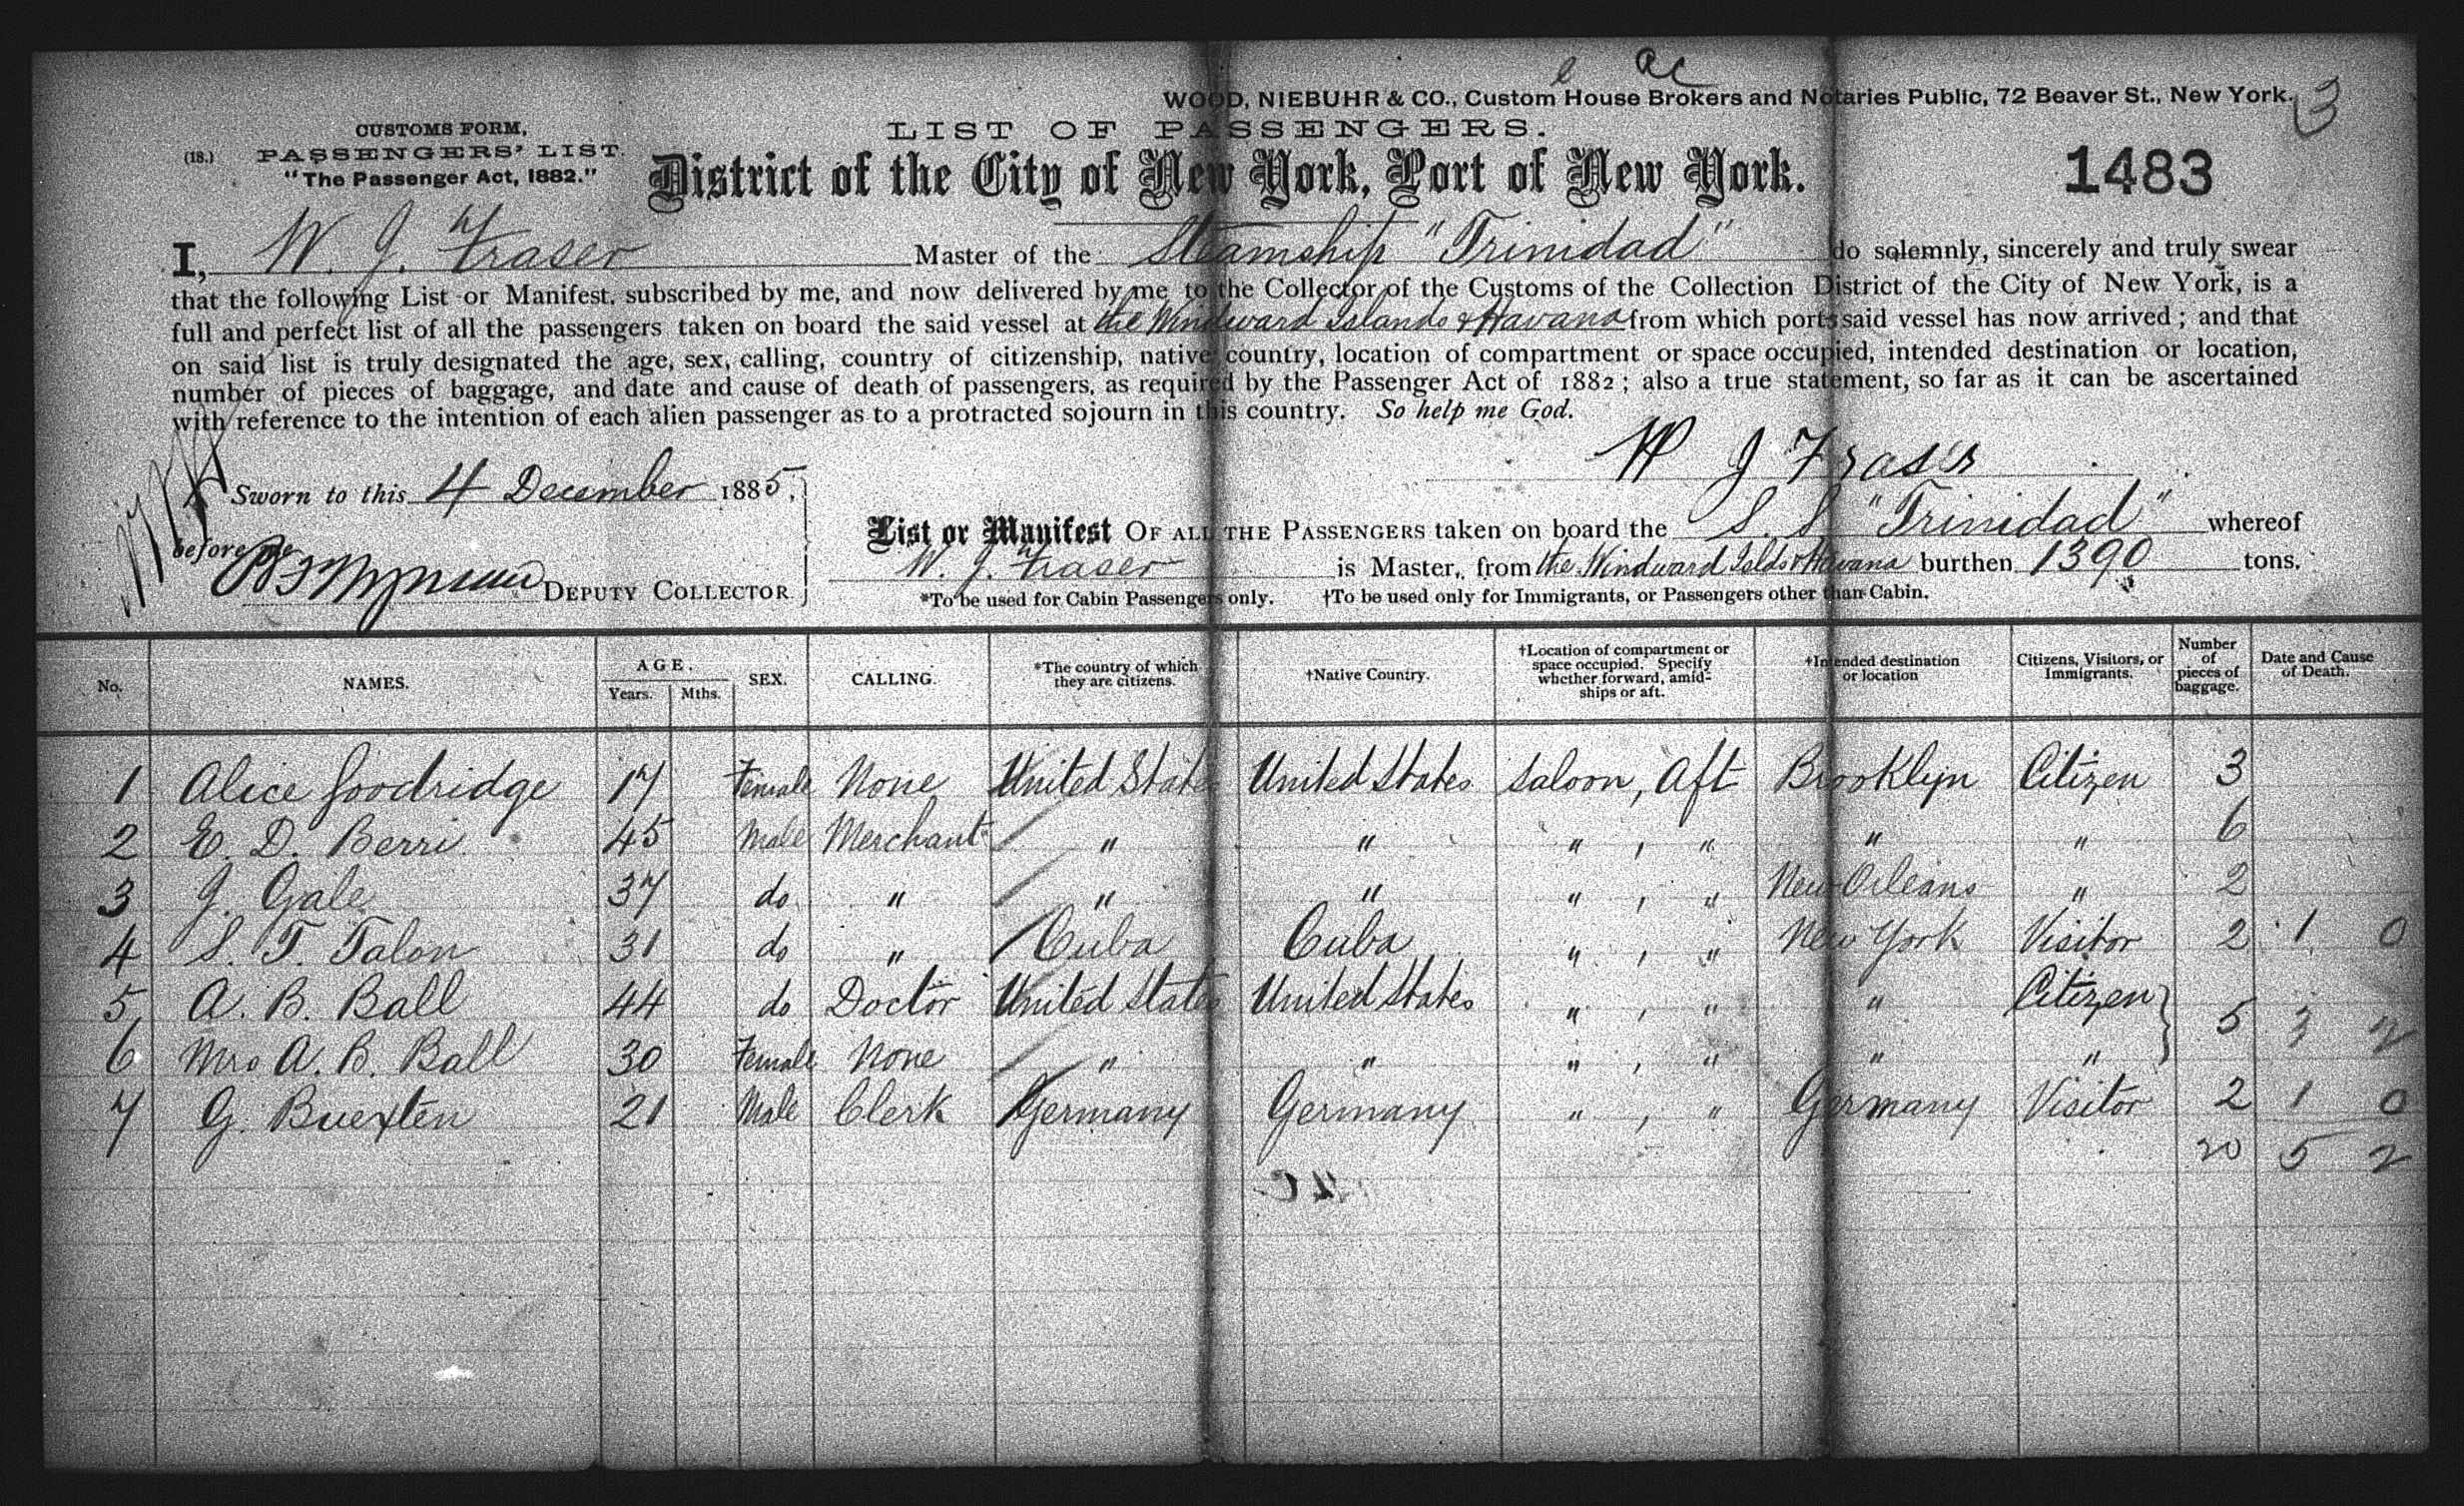 ac
WOOD, NIEBUHR & CO., Custom House Brokers and Notaries Public, 72 Beaver St., New York.
3
CUSTOMS FORM,
(18.) PASSENGERS' LIST.
"The Passenger Act, 1882."
LIST OF PASSENGERS.
District of the City of New York, Port of New York.
1483
I, W. J. Fraser Master of the Steamship "Trinidad" do solemnly, sincerely and truly swear
that the following List or Manifest, subscribed by me, and now delivered by me to the Collector of the Customs of the Collection District of the City of New York, is a
full and perfect list of all the passengers taken on board the said vessel at the Windward Islands & Havana from which ports said vessel has now arrived; and that
on said list is truly designated the age, sex, calling, country of citizenship, native country, location of compartment or space occupied, intended destination or location,
number of pieces of baggage, and date and cause of death of passengers, as required by the Passenger Act of 1882; also a true statement, so far as it can be ascertained
with reference to the intention of each alien passenger as to a protracted sojourn in this country. So help me God.
W J Fraser
Sworn to this 4 December 1885,
before me
DEPUTY COLLECTOR
List or Manifest OF ALL THE PASSENGERS taken on board the S. S "Trinidad" whereof
W. J. Fraser is Master, from the Windward Islds & Havana burthen 1390 tons.
*To be used for Cabin Passengers only. †To be used only for Immigrants, or Passengers other than Cabin.
No. NAMES. AGE. Years. Mths. SEX. CALLING. *The country of which they are citizens. †Native Country. †Location of compartment or space occupied. Specify whether forward, amidships or aft. †Intended destination or location Citizens, Visitors, or Immigrants. Number of pieces of baggage. Date and Cause of Death.
1 Alice Goodridge 17 Female None United States United States Saloon, Aft Brooklyn Citizen 3
2 E. D. Berri 45 Male Merchant " " " , " " " 6
3 J. Gale 37 do " " " " , " New Orleans " 2
4 S. T. Talon 31 do " Cuba Cuba " , " New York Visitor 2 1 0
5 A. B. Ball 44 do Doctor United States United States " , " " Citizen } 5 3 2
6 Mrs A. B. Ball 30 Female None " " " , " " "
7 G. Buexten 21 Male Clerk Germany Germany " , " Germany Visitor 2 1 0
20 5 2